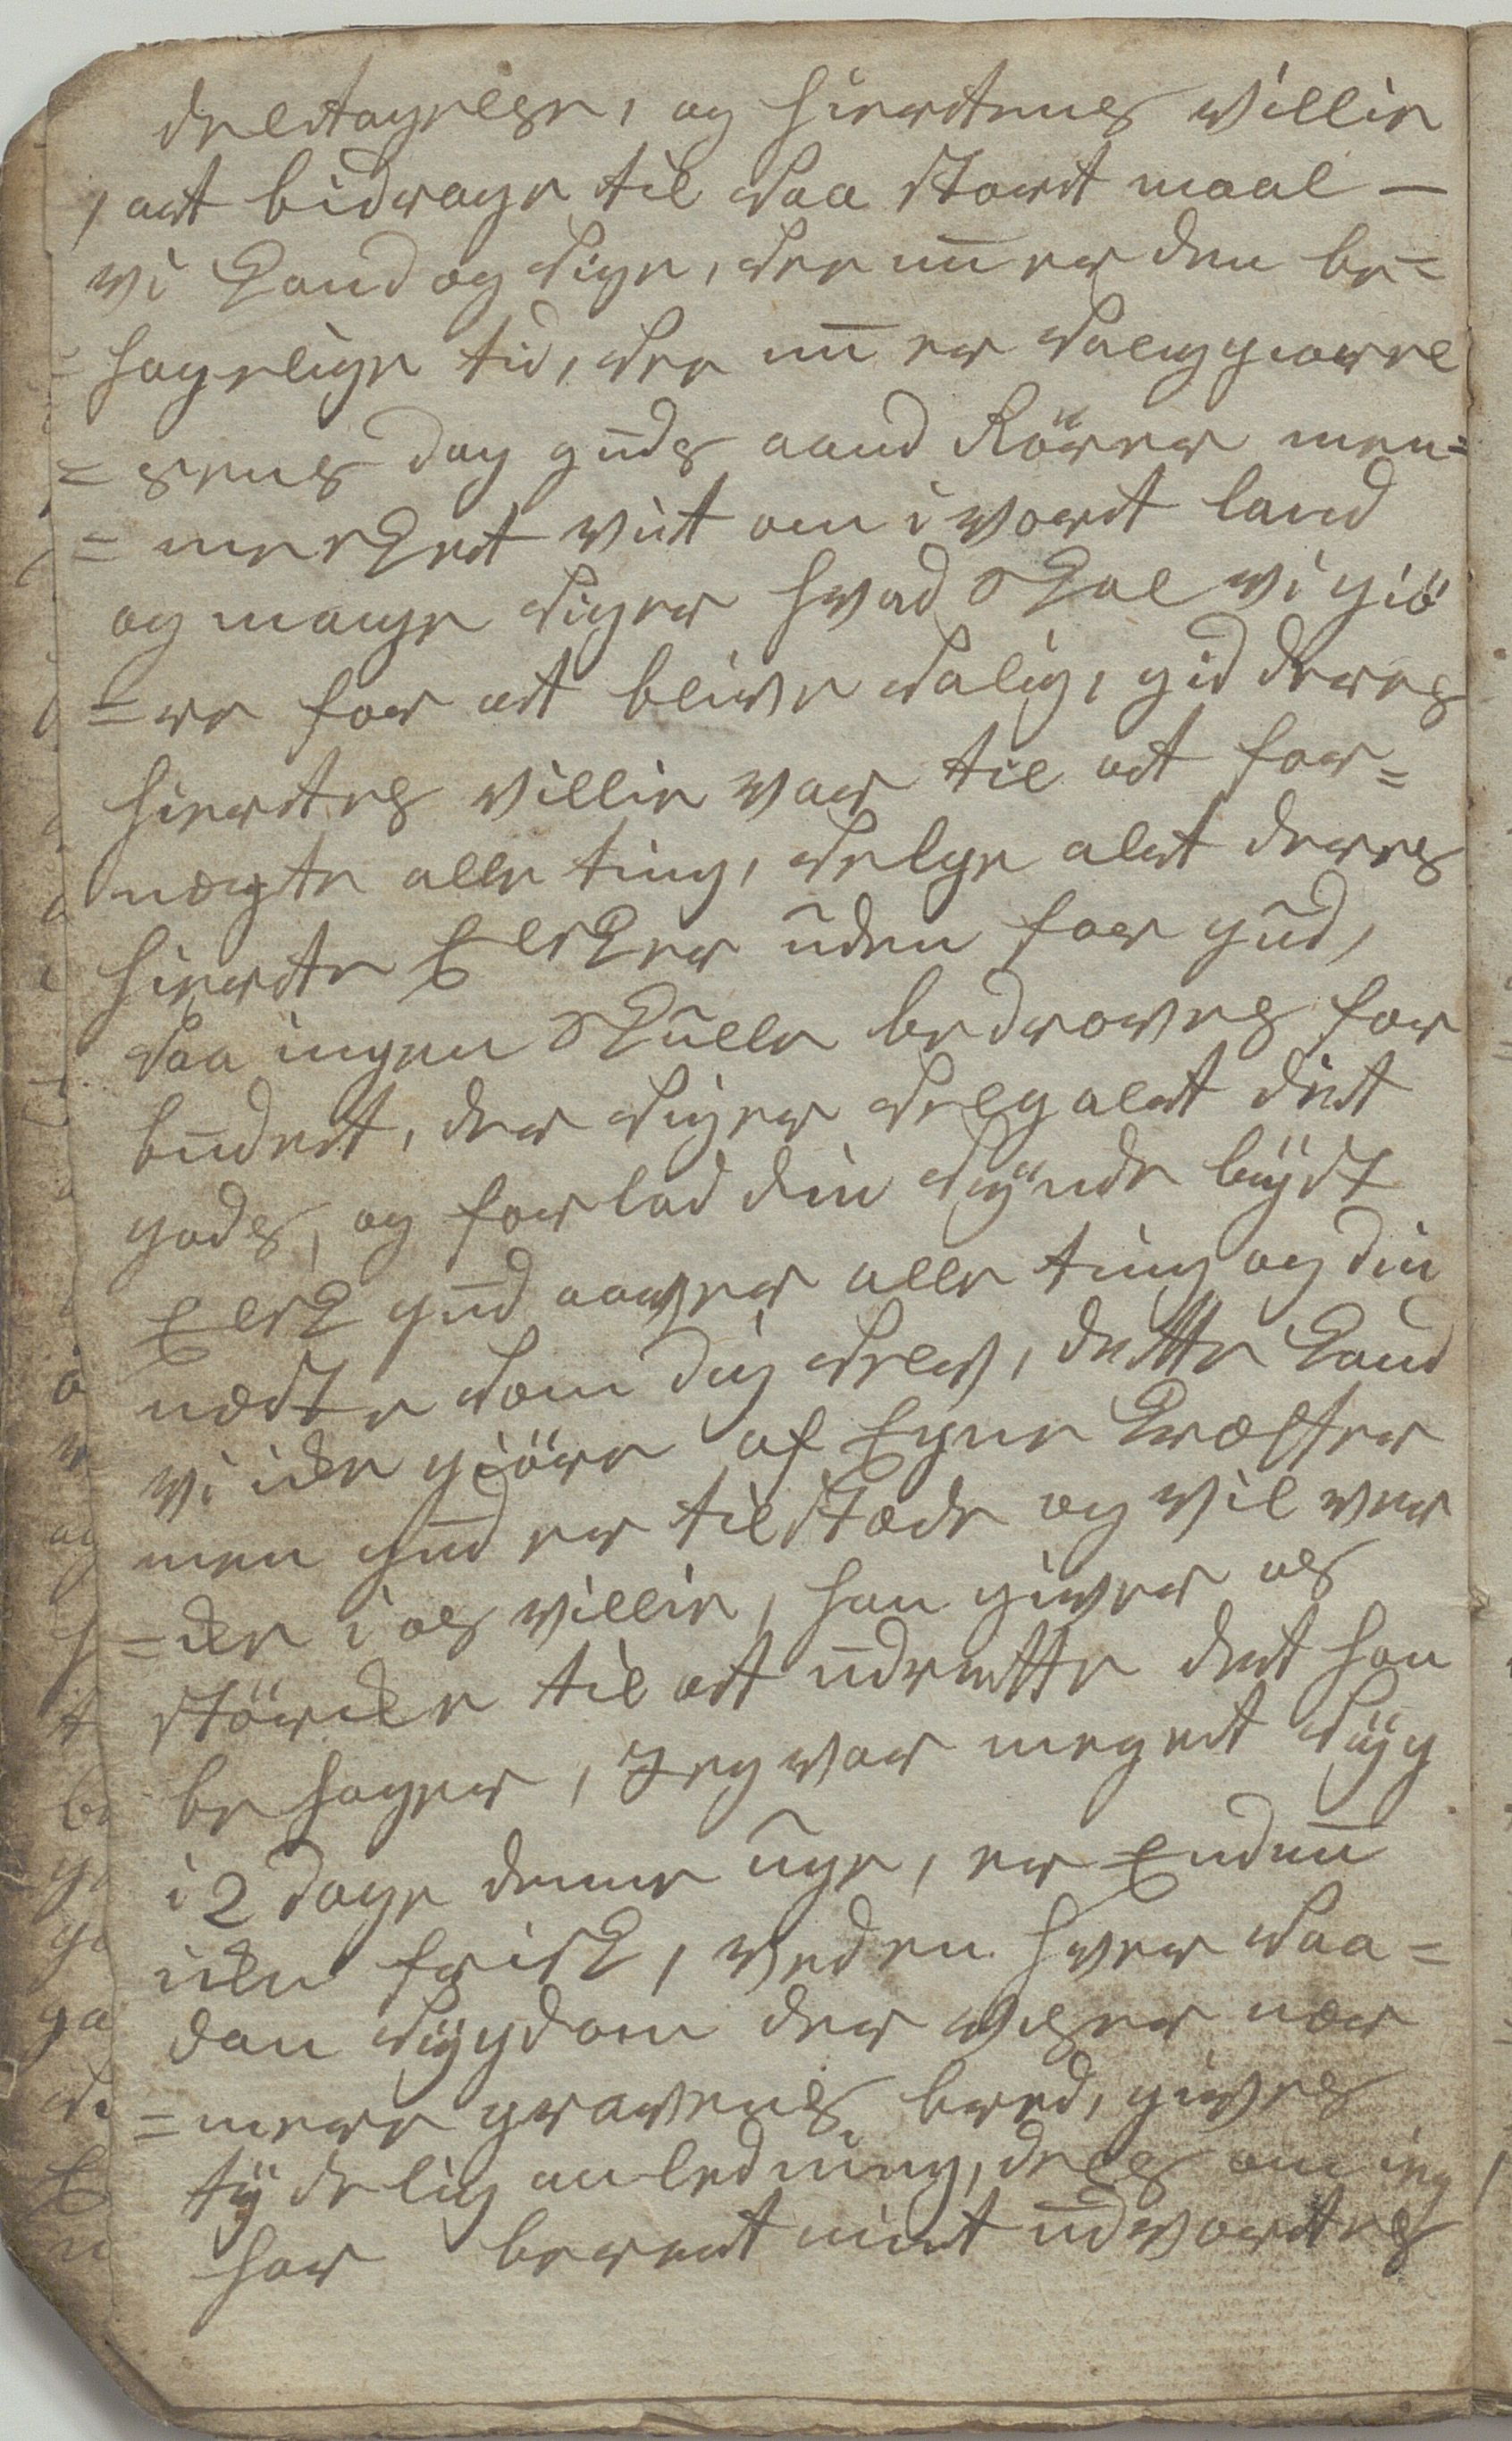 deeltagelse, og hiertens villie
, at bidrage til saa stort maal —
vi kand og sige, see nu er den be=
hagelige tid, see nu er saliggiørel
= sens dag guds aand Rörer men=
= nesket vit om i vort land
og mange siger hvad skal vi giö
= re for at blive salig, gid deres
hiertes villie var til at for=
nægte alle ting, selge alt deres
hierte Elsker uden for gud,
saa ingen skulle bedrøves for
budet, der siger selg alt dit
gods, og forlad din synde lÿst
Elsk gud over alle ting og din
næste som dig selv, dette kand
vi icke giöre af Egne kræfter
men gud er tilstæde og vil vir
= ke i os villie, han giver os
störcke til at udrette det han
behager, Jeg var meget sÿg
i 2 dage denne uge, er Endnu
icke frisk, veden hver saa=
dan sÿgdom der viser nær
= mere gravens bred, gives
tÿdelig anledning, dels om ieg
har beret mit udvortes